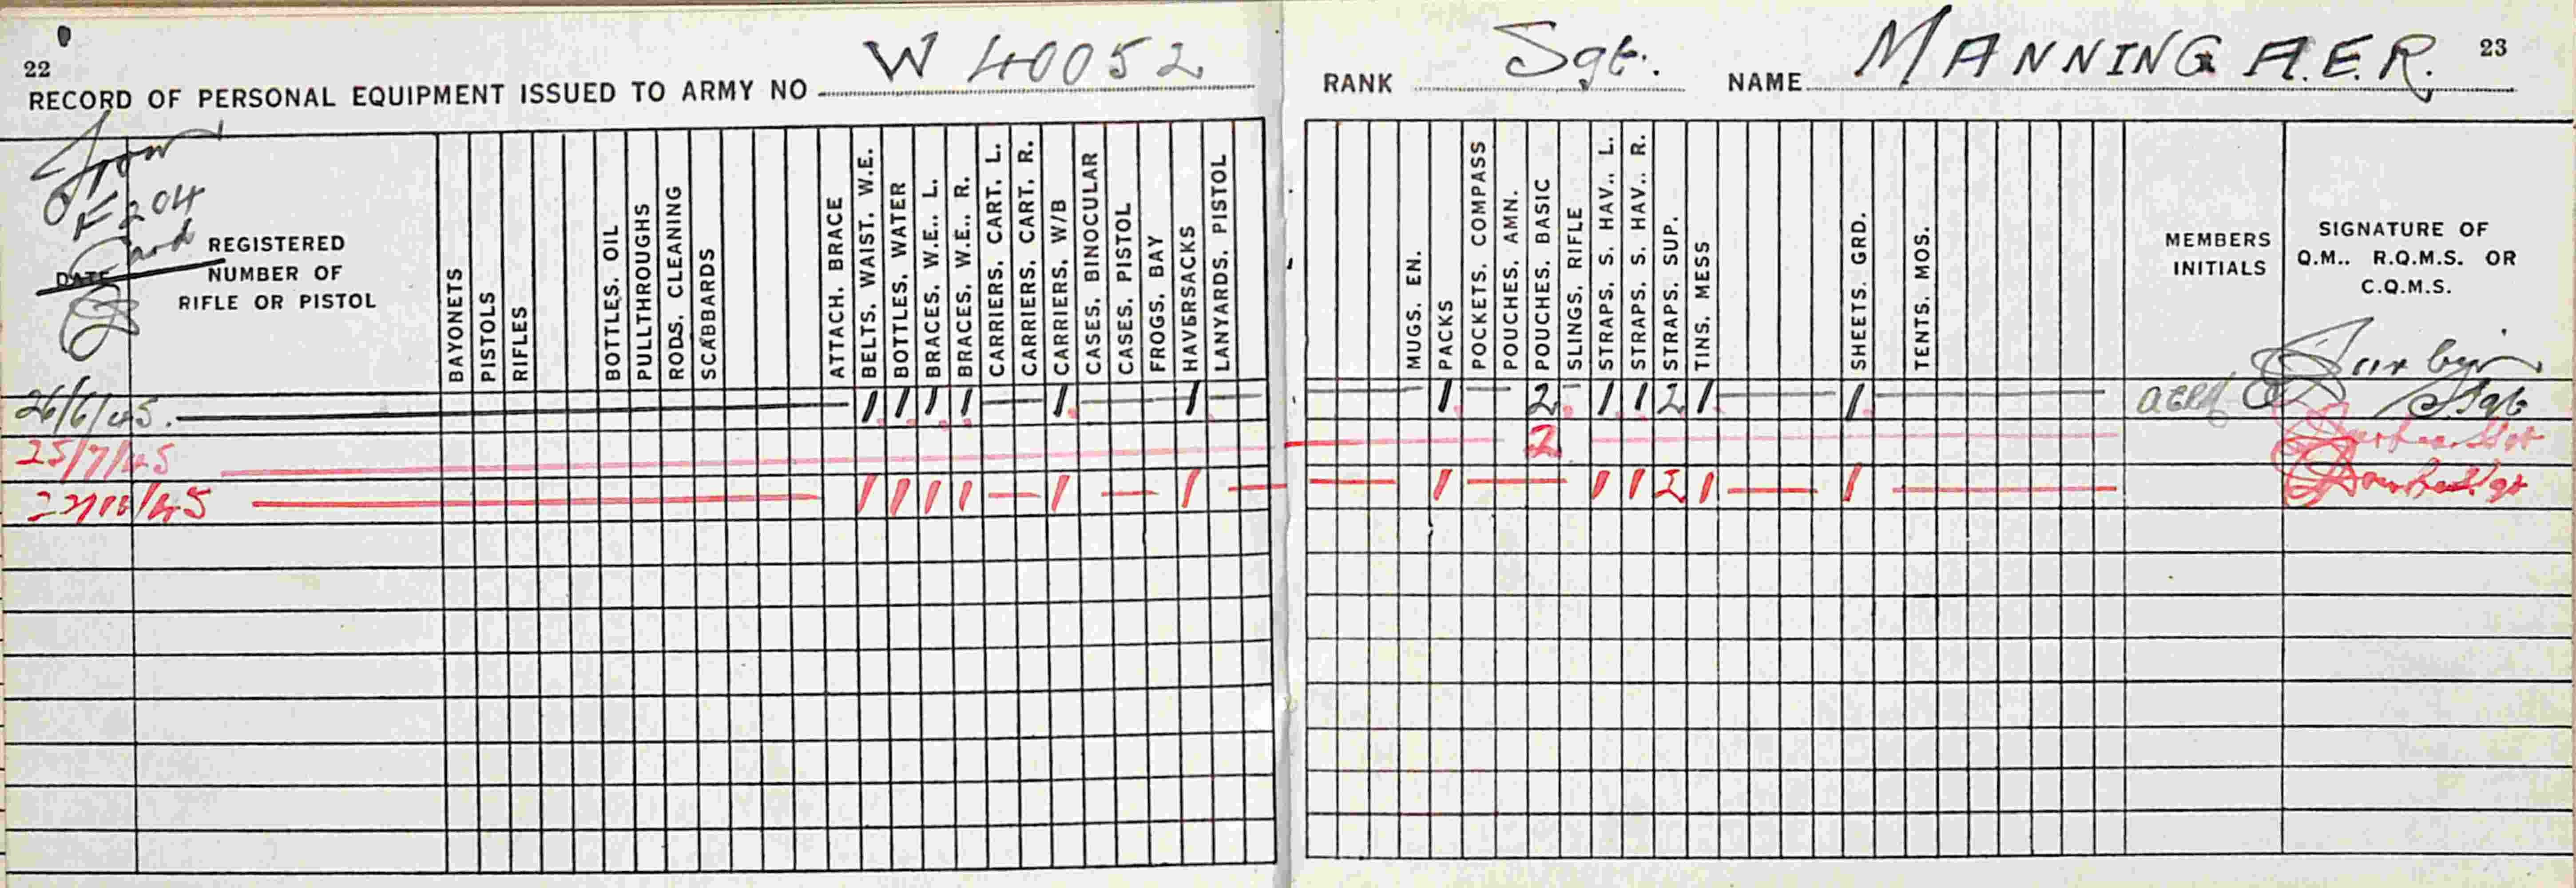 22
RECORD OF PERSONAL EQUIPMENT ISSUED TO ARMY NO W 40052
RANK Sgt. NAME MANNING A.E.R. 23
From
F 204
Card
DATE
REGISTERED
NUMBER OF
RIFLE OR PISTOL
BAYONETS
PISTOLS
RIFLES
BOTTLES. OIL
PULLTHROUGHS
RODS. CLEANING
SCABBARDS
ATTACH. BRACE
BELTS. WAIST. W.E.
BOTTLES. WATER
BRACES. W.E.. L.
BRACES. W.E.. R.
CARRIERS. CART. L.
CARRIERS. CART. R.
CARRIERS. W/B
CASES. BINOCULAR
CASES. PISTOL
FROGS. BAY
HAVERSACKS
LANYARDS. PISTOL
MUGS. EN.
PACKS
POCKETS. COMPASS
POUCHES. AMN.
POUCHES. BASIC
SLINGS. RIFLE
STRAPS. S. HAV.. L.
STRAPS. S. HAV.. R.
STRAPS. SUP.
TINS. MESS
SHEETS. GRD.
TENTS. MOS.
MEMBERS
INITIALS
SIGNATURE OF
Q.M.. R.Q.M.S. OR
C.Q.M.S.
26/6/45. 1 1 1 1 1 1 1 2 1 1 2 1 1 Sgt
25/7/45 2
1 1 1 1 1 1 1 1 1 2 1 1